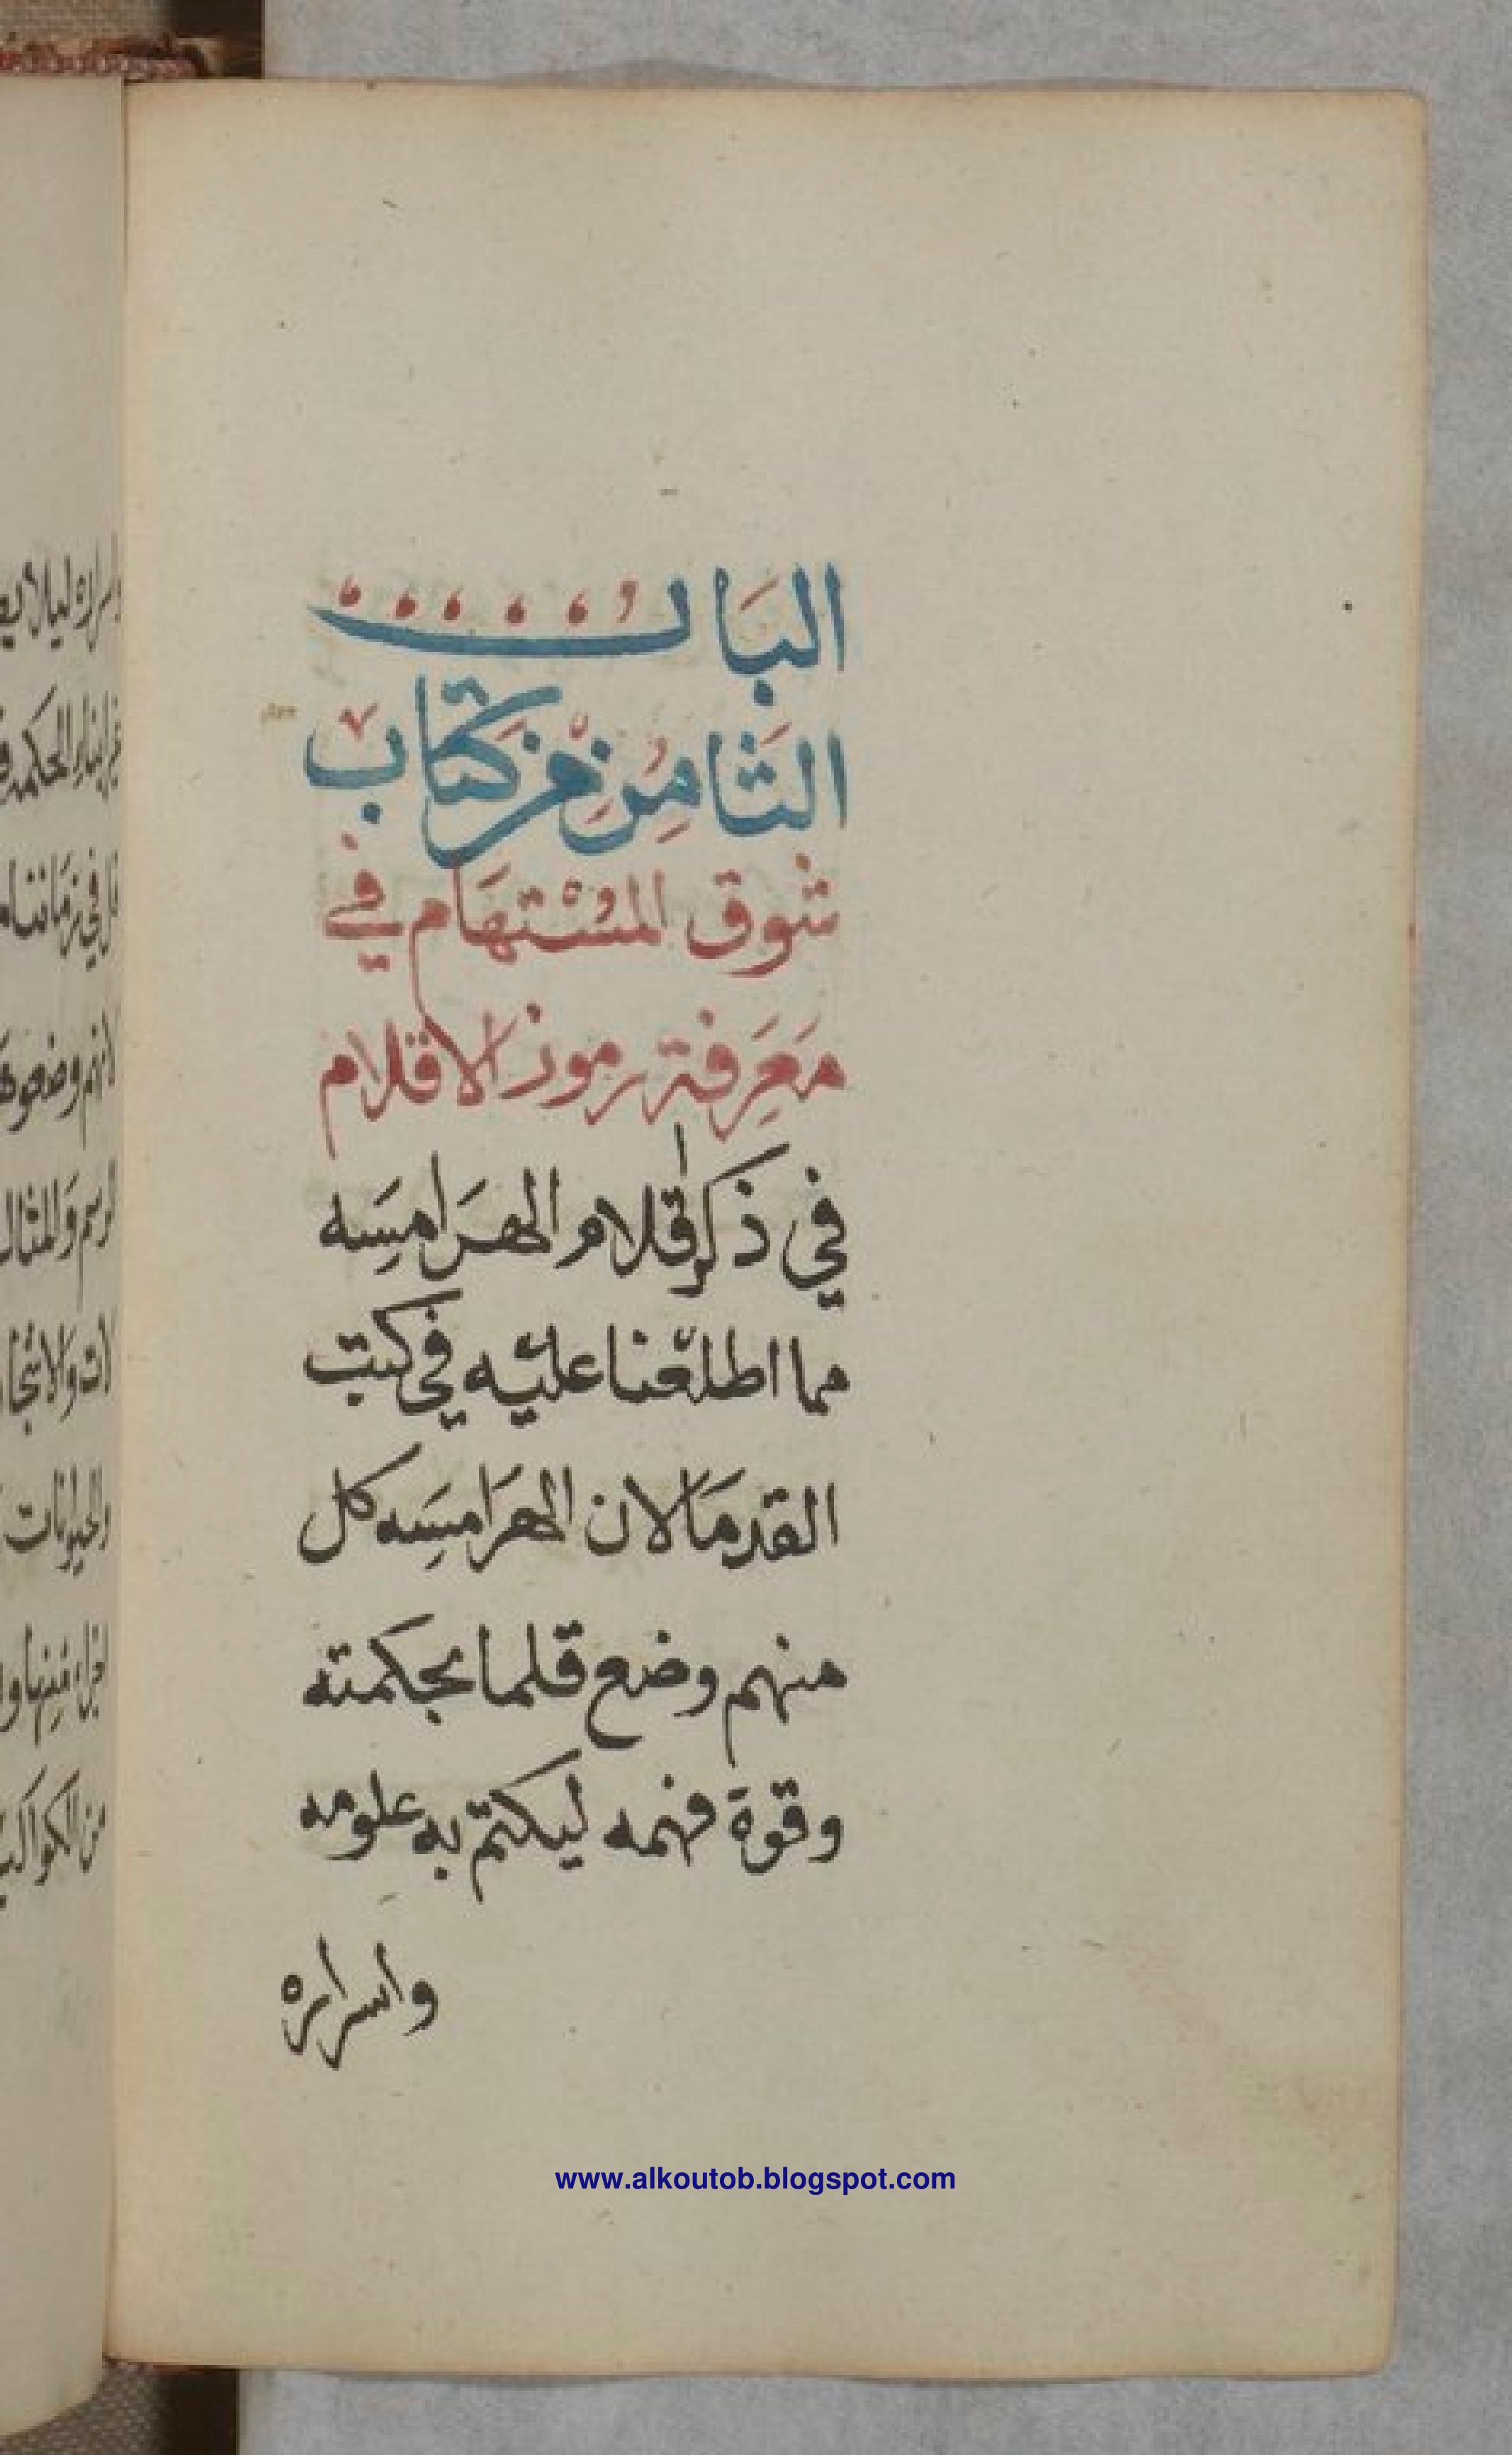 البَابُ
الثَّامِنُ مِنْ كتَاب
شوق المُسْتهَام في
مَعَرِفة رموز الاقلام
في ذكر اقلام الهَرَامِسَه
مما اطلعْنا عليْه في كتب
القدمَا لان الهَرَامِسَه كل
منهم وضع قلما بحكمته
وقوة فهمه ليكتم به علومه
واسراره
www.alkoutob.blogspot.com